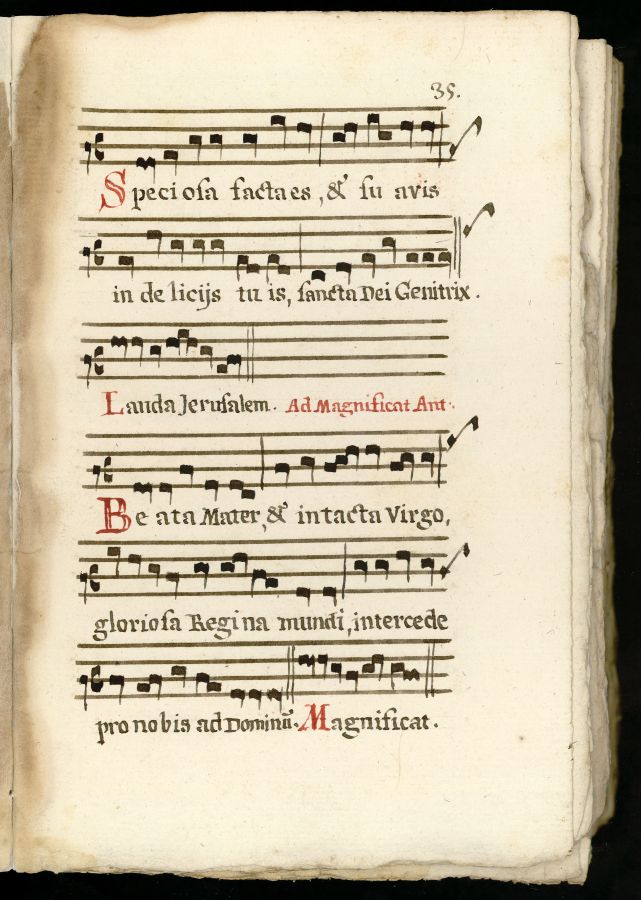 35.
Speciosa facta es, & su avis
in de licijs tu is, sancta Dei Genitrix.
Lauda Jerusalem. Ad Magnificat Ant.
Be ata Mater, & intacta Virgo,
gloriosa Regina mundi, intercede
pro nobis ad Dominū. Magnificat.